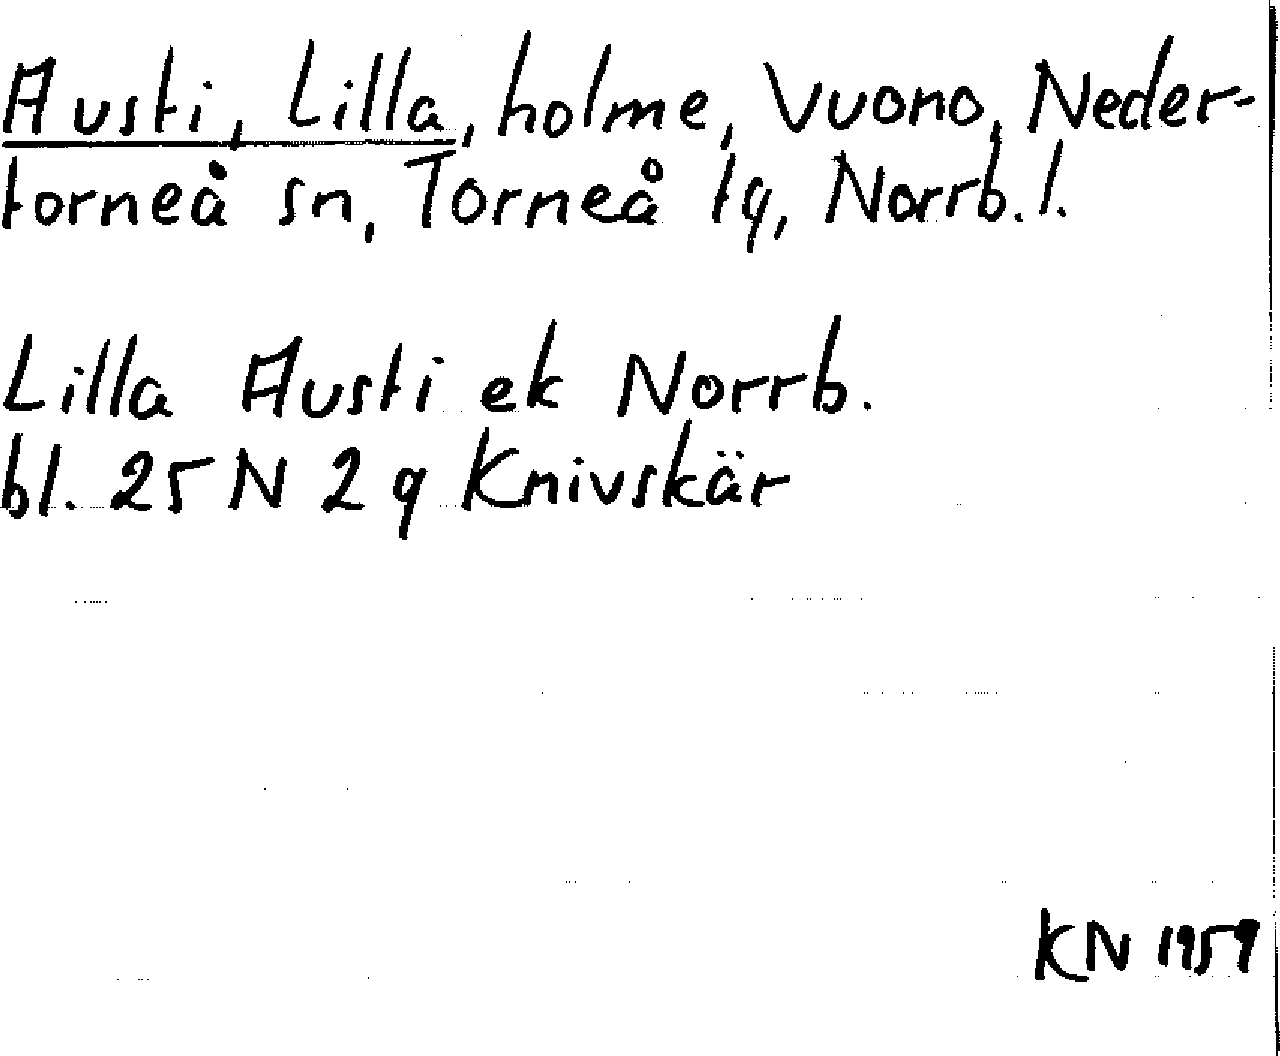 Austi, Lilla, holme, Vuono, Neder-
torneå sn, Torneå tg, Norrb.l.
Lilla Austi ek Norrb.
bl. 25 N 2 g Knivskär
KN 1959